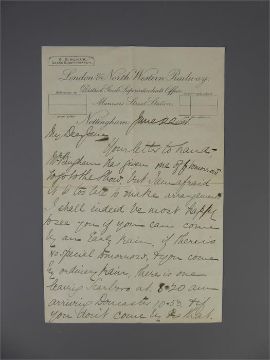 London & North Western Railway.
District Goods Superintendent's Office
Manvers Street Station
Nottingham, June 22nd
My Dear Jane
Your letter to hand
Mr Bingham has given me off tomorrow
to go to the Show, but I am afraid
it is too late to make arrangements
I shall indeed be most happy
to see you if you can come
by an Early train, if there is
no special tomorrow, & you come
by ordinary train, there is one
leaving Scarboro at 8.20 am
arriving Doncaster 10.53 & if
you don't come by that